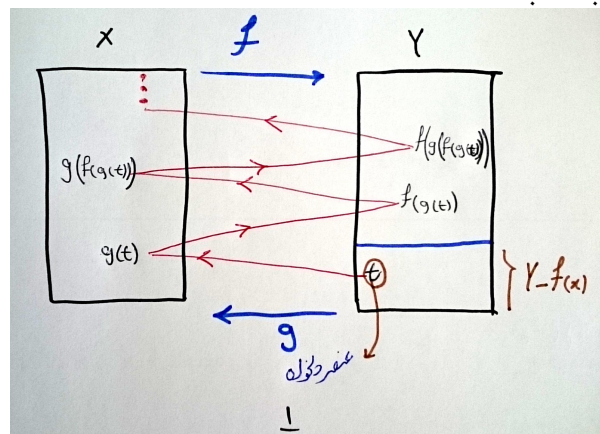 X f Y
f(g(f(g(t))))
g(f(g(t)))
f(g(t))
g(t)
t
Y-f(x)
g
عنصر دلخواه
1